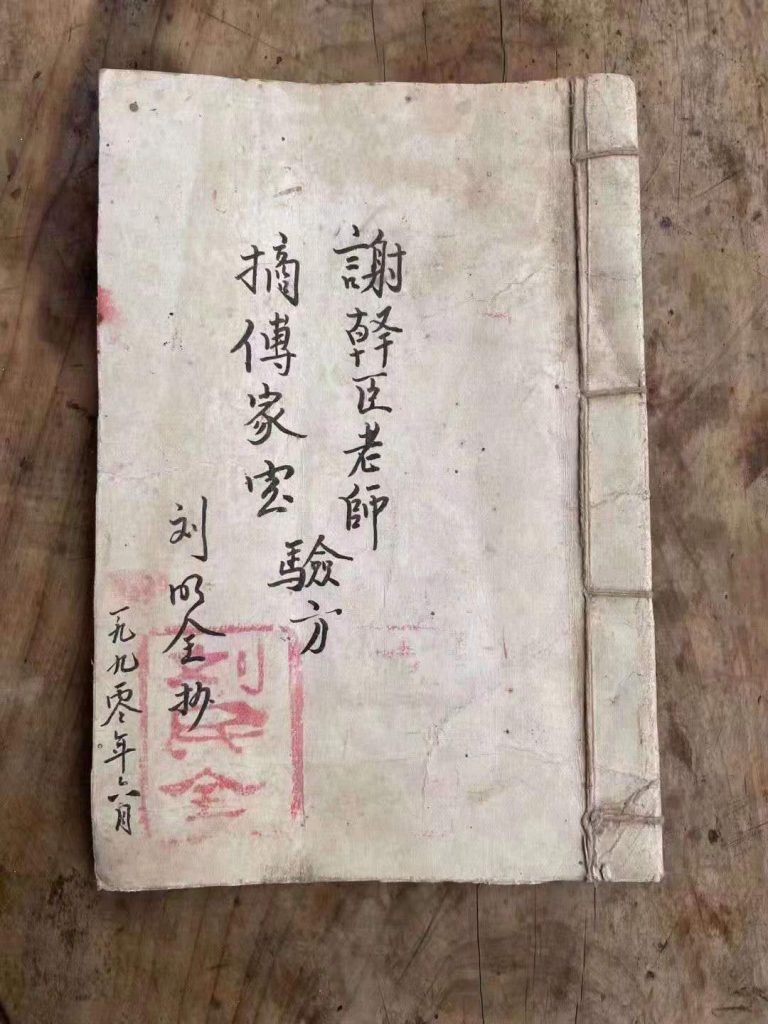 謝臣老師
摘傳家宝
驗方
刘明全抄
一九九零年六月
刘民全